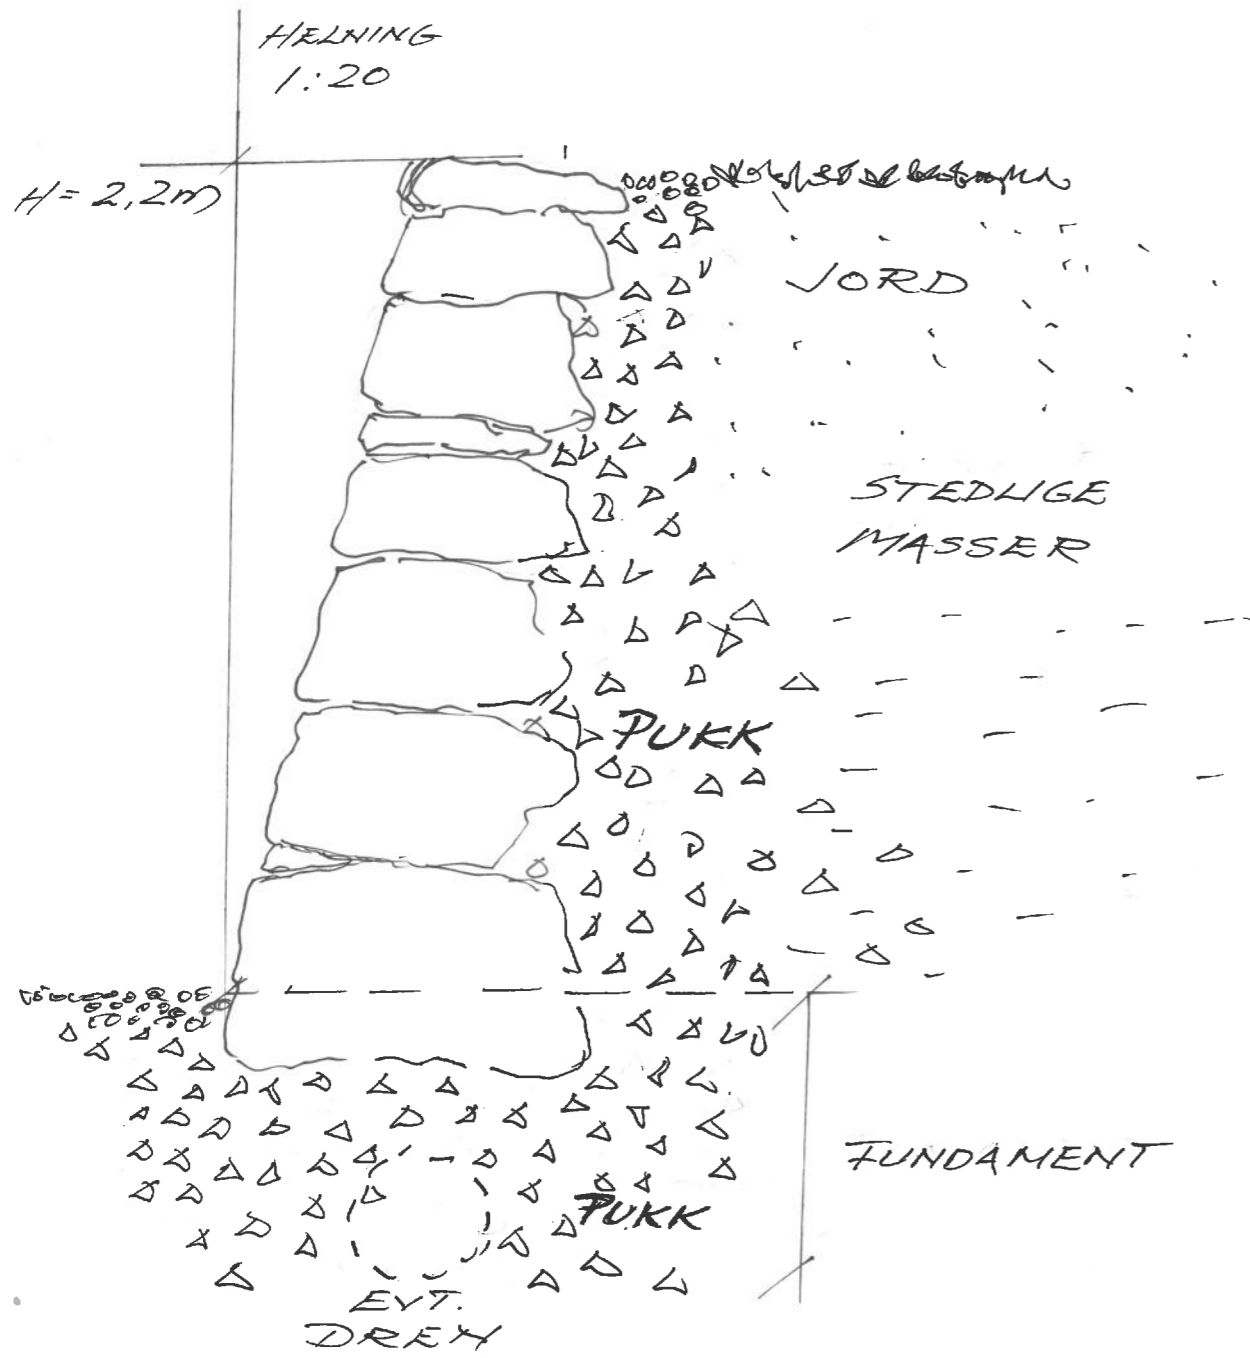 HELNING
1:20
H = 2,2m
JORD
STEDLIGE
MASSER
PUKK
FUNDAMENT
PUKK
EVT.
DREN